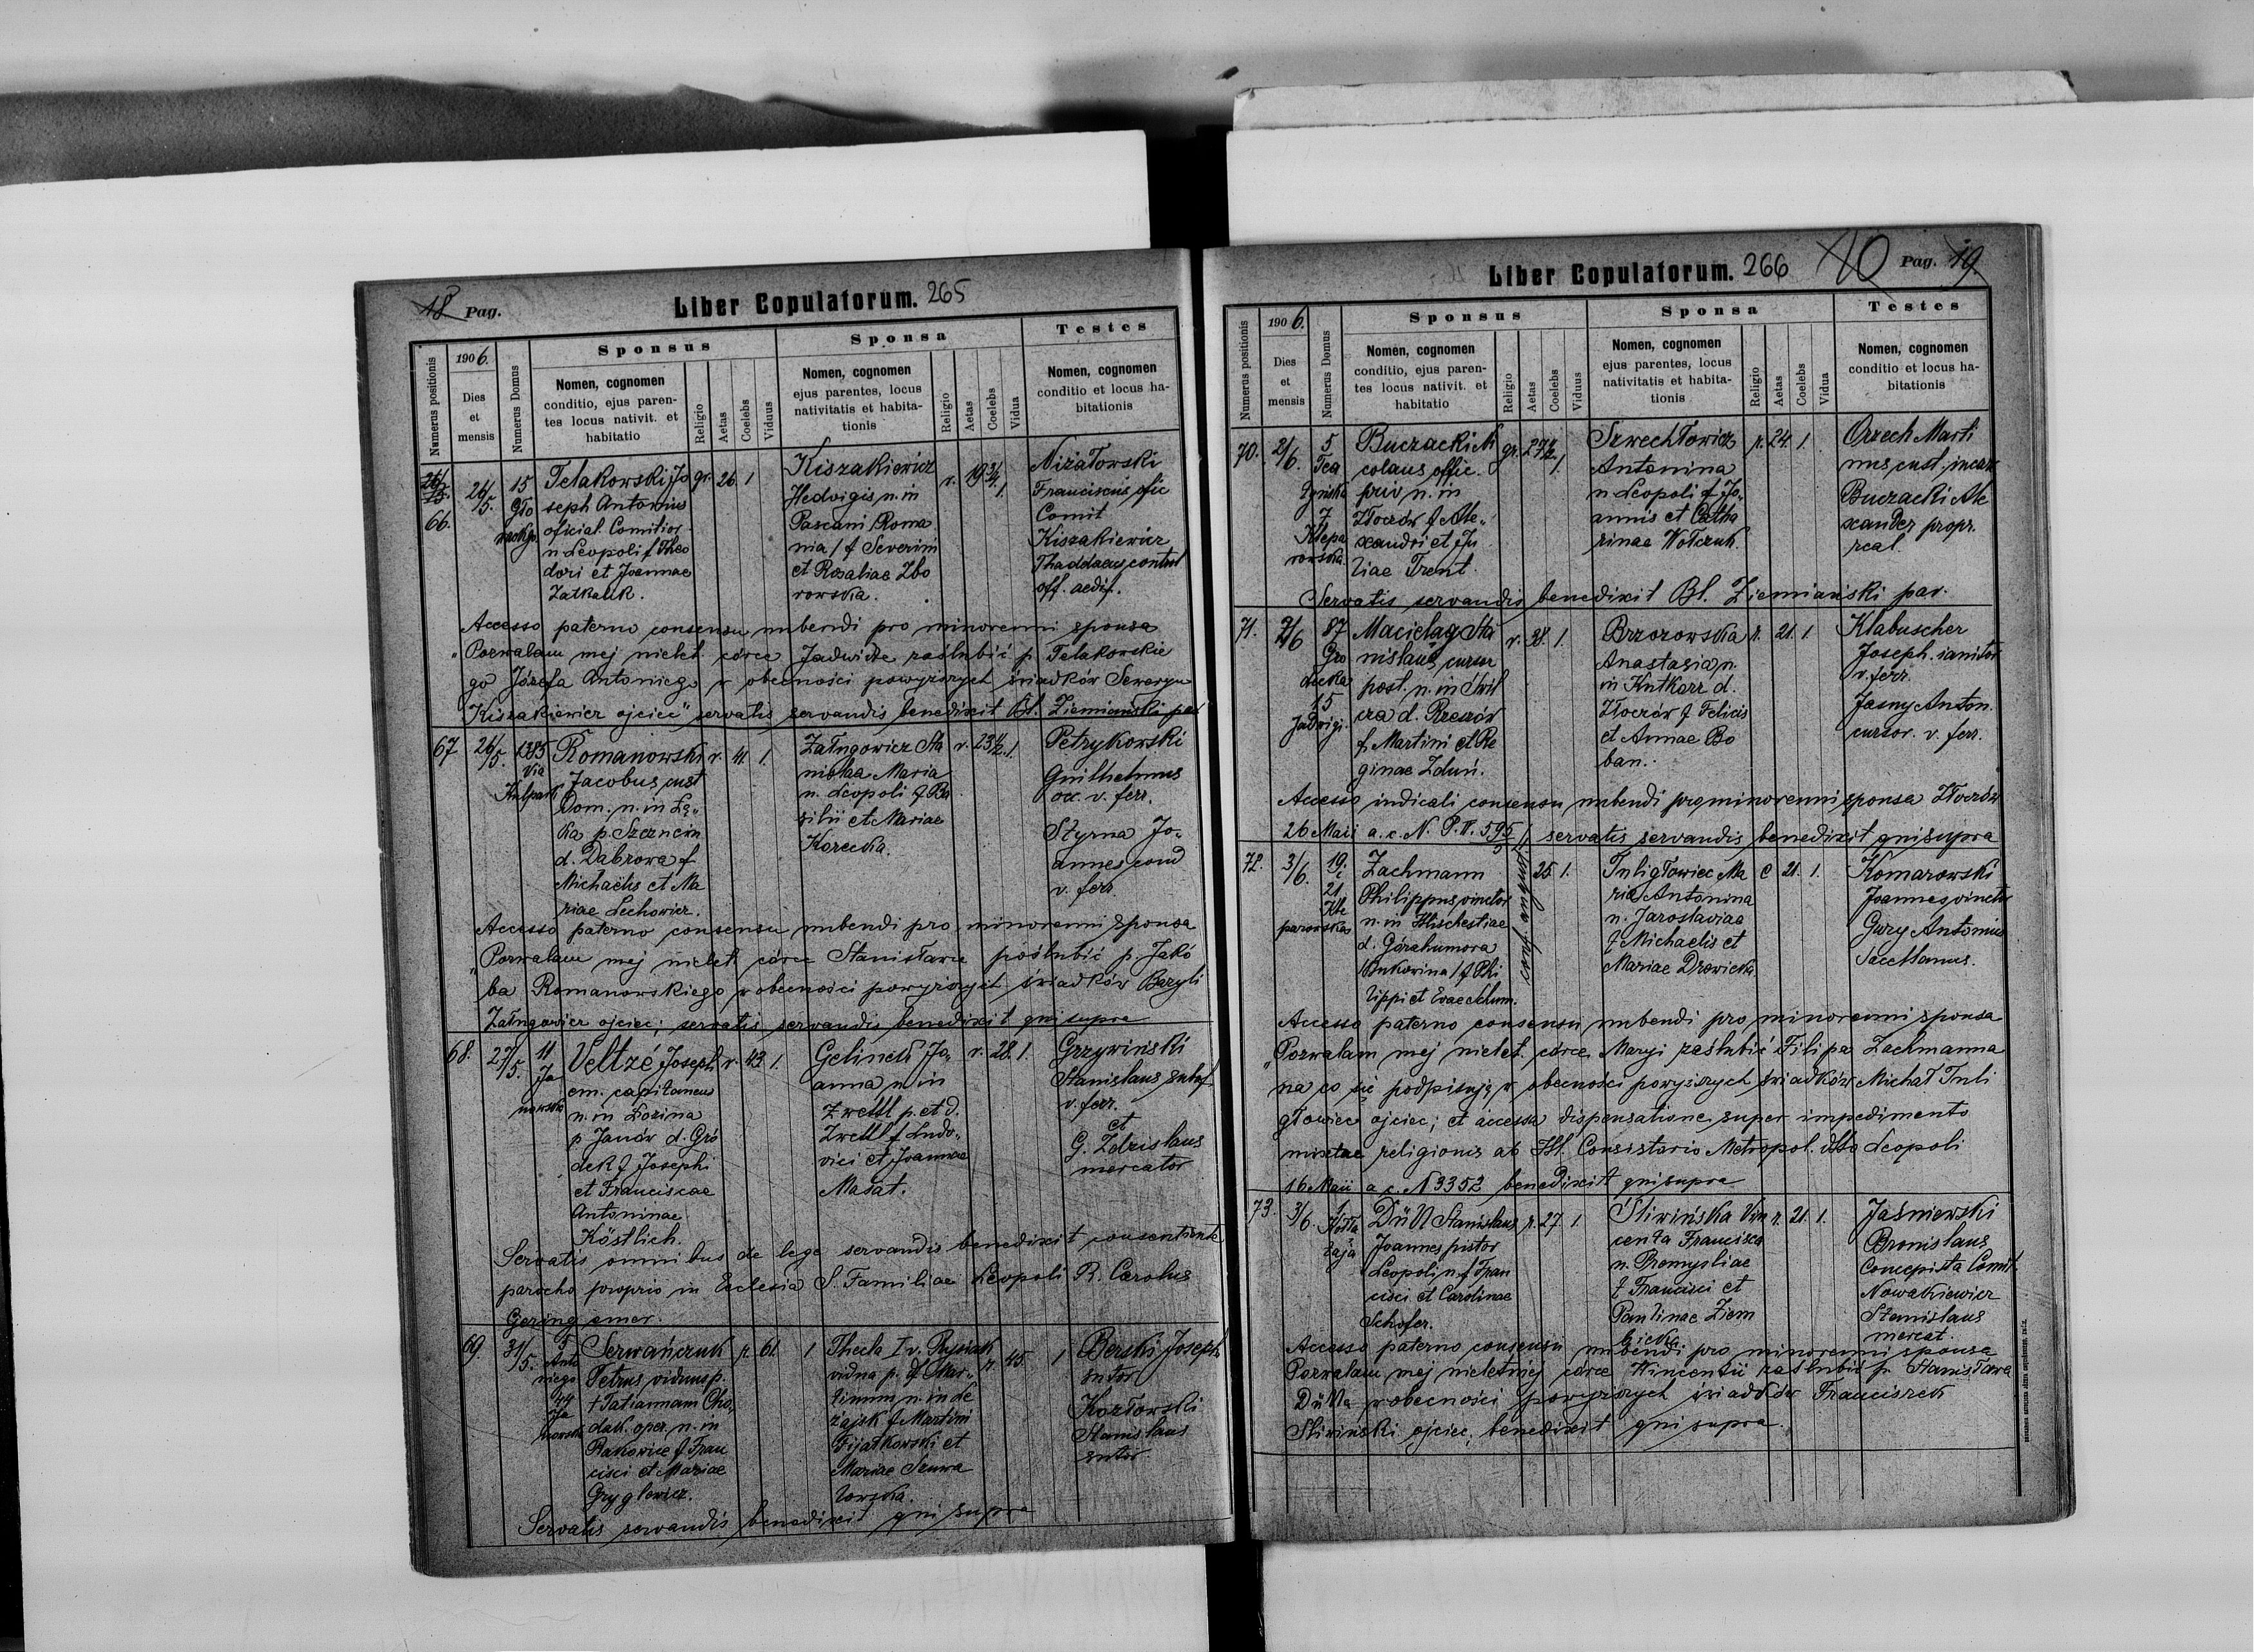 18 Pag.
Liber Copulatorum. 265
Numerus positionis
1906.
Dies
et
mensis
Numerus Domus
Sponsus
Nomen, cognomen
conditio, ejus paren-
tes locus nativit. et
habitatio
Religio
Aetas
Coelebs
Viduus
Sponsa
Nomen, cognomen
ejus parentes, locus
nativitatis et habita-
tionis
Religio
Aetas
Coelebs
Vidua
Testes
Nomen, cognomen
conditio et locus ha-
bitationis
66.
26/5.
15
Gło
Telakowski Jo
seph Antonius
oficial. Comitior
n. Leopoli f. Theo
dori et Joannae
Zatkalik.
gr. 26. 1
Kiszakiewicz
Hedvigis, n. in
Pascani /Roma
nia/ f Severini
et Rosaliae Zbo
rowska.
r. 19 3/4 1.
Niżałowski
Franciscus ofic
Comit
Kiszakiewicz
Thaddaeus control
off. aedif.
Accesso paterno consensu nubendi pro minorenni sponsa
"Pozwalam mej nielet córce Jadwidze zaślubić p. Telakowskie
go Józefa Antoniego w obecności powyższych świadków Seweryn
Kiszakiewicz ojciec" servatis servandis benedixit Bł. Ziemiański par
67
26/5.
1285
Via
Kulpark
Romanowski
Jacobus, cust
Dom. n. in Łą-
ka p. Szczucin
d. Dabrowa f
Michaëlis et Ma
riae Lechowicz.
r. 41. 1.
Załugowicz Sta
nislaa Maria
n. Leopoli f Ba
silii et Mariae
Korecka.
r. 23 1/2. 1.
Petrykowski
Guilhelmus
v. ferr.
Styrna Jo-
annes cond
v. ferr
Accesso paterno consensu nubendi pro minorenni sponsa
"Pozwalam mej nielet. córce Stanisławie poślubić p. Jakó
ba Romanowskiego w obecności powyższych świadków Bazyli
Załugowicz ojciec; servatis servandis benedixit qui supra
68.
27/5.
11
Ja
nowska
Veltzé Joseph
em. capitaneus
n. in Łozina
p Janów d. Gró
dek f Josephi
et Franciscae
Antoninae
Köstlich.
r. 43. 1.
Gelinek Jo-
anna n. in
Zwettl p. et d.
Zwettl f Ludo-
vici et Joannae
Masat.
r. 28. 1.
Grzywiński
Stanislaus
v. ferr.
et
G. Zdzislaus
mercator
Servatis omnibus de lege servandis benedixit consentiente
parocho proprio in Ecclesia S. Familiae Leopoli R. Carolus
Gering emer.
69.
31/5.
5
Anto
niego
44
Ja
nowska
Serwańczuk
Petrus viduus p.
+ Tatiannam Cho-
dak. oper. n. in
Rakowice f. Fran
cisci et Mariae
Gryglewicz.
r. 61. 1.
Thecla I v. Rysiak
vidua p. + Mar-
tinum n. in Le
żajsk f Martini
Fijałkowski et
Mariae Szuwa
lowska.
r. 45. 1
Berski Joseph
sutor
Kozłowski
Stanislaus
sutor.
Servatis servandis benedixit qui supra
Liber Copulatorum. 266
Pag. 19.
Numerus positionis
1906.
Dies
et
mensis
Numerus Domus
Sponsus
Nomen, cognomen
conditio, ejus paren-
tes locus nativit. et
habitatio
Religio
Aetas
Coelebs
Viduus
Sponsa
Nomen, cognomen
ejus parentes, locus
nativitatis et habita-
tionis
Religio
Aetas
Coelebs
Vidua
Testes
Nomen, cognomen
conditio et locus ha-
bitationis
70.
2/6.
5
7
Klepa
rowska
Buczacki Ni
colaus offic.
priv n. in
Złoczów f Ale-
xandri et Ju
liae Trent.
gr. 27 1/2 1.
Szwechłowicz
Antonina
n. Leopoli f Jo-
annis et Catha
rinae Wołczuk.
r. 24. 1.
Orzech Marti
nus cust. incarc
Buczacki Ale
xander propr.
real.
Servatis servandis benedixit Bł. Ziemiański par.
71.
2/6
87
Gro
decka
15
Jadwigi.
Macielag Sta
nislaus, cursor
post. n. in Świl
cza d. Rzeszów
f. Martini et Re
ginae Zduń.
r. 28. 1.
Brzozowska
Anastasia n.
in Kutkorz d.
Złoczów f Felicis
et Annae Bo
ban.
r. 21. 1.
Klabuscher
Joseph. ianitor
v. ferr.
Jasny Anton.
cursor. v. ferr.
Accesso iudicali consensu nubendi pro minorenni sponsa Złoczów
26 Maii a. c. N. P. II. 595/6 servatis servandis benedixit qui supra
72.
3/6.
19.
i
21
Kle
parowska
Zachmann
Philippus vinctor
n. in Illischestiae
d. Górahumora
/Bukovina/ f Phi
lippi et Evae Schum.
conf. august.
25. 1.
Tuligłowiec Ma
ria Antonina
n. Jaroslaviae
f Michaelis et
Mariae Drowicka
r. 21. 1.
Komarowski
Joannes vinctor
Gury Antonius
Saccellanus.
Accesso paterno consensu nubendi pro minorenni sponsa
"Pozwalam mej nielet. córce Maryi zaślubić Filipa Zachmanna
na co się podpisuję w obecności powyższych świadków Michał Tuli
głowiec ojciec; et accessa dispensatione super impedimento
mixtae religionis ab Ill. Consistorio Metropol. ddto Leopoli
16 Maii a. c. N 3352 benedixit qui supra
73.
3/6.
1
Kołła
taja
Düll Stanislaus
Joannes pistor
Leopoli n. f Fran
cisci et Carolinae
Schofer.
r. 27. 1.
Śliwińska Vin
centa Francisca
n. Premysliae
f Francisci et
Paulinae Ziem
bicka
r. 21. 1.
Jaśniewski
Bronislaus
Concepista Comit
Nowakiewicz
Stanislaus
mercat.
Accesso paterno consensu nubendi pro minorenni sponsa
Pozwalam mej nieletniej córce Wincentii zaślubić p. Stanisława
Dülla w obecności powyższych świadków Franciszek
Śliwiński ojciec, benedixit qui supra.